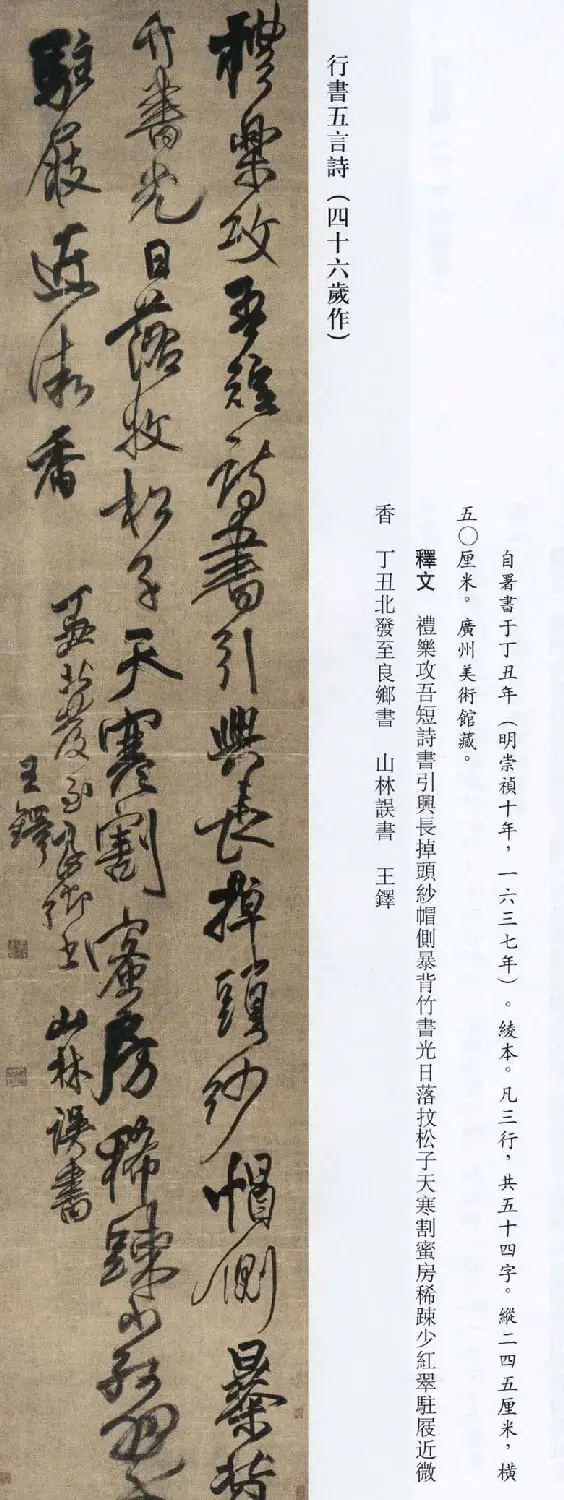 行書五言詩（四十六歲作）
自署書于丁丑年（明崇禎十年，一六三七年）。綾本。凡三行，共五十四字。縱二四五厘米，橫
五〇厘米。廣州美術館藏。
釋文　禮樂攻吾短詩書引興長掉頭紗帽側暴背竹書光日落抆松子天寒割蜜房稀踈少紅翠駐屐近微
香　丁丑北發至良鄉書　山林誤書　王鐸
禮樂攻吾短詩書引興長掉頭紗帽側暴背
竹書光日落抆松子天寒割蜜房稀踈少紅翠
駐屐近微香　丁丑北發至良鄉書　山林誤書
王鐸